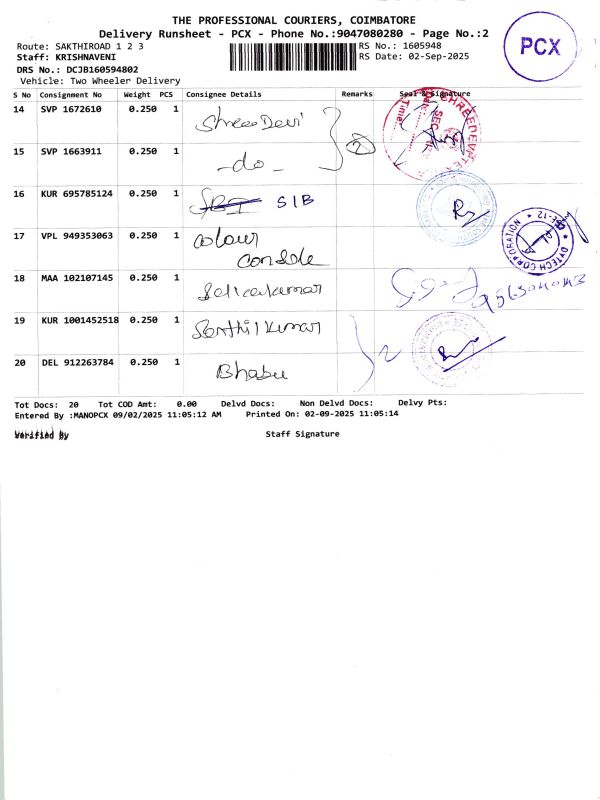 THE PROFESSIONAL COURIERS, COIMBATORE
Delivery Runsheet - PCX - Phone No.:9047080280 - Page No.:2
PCX
Route: SAKTHIROAD 1 2 3
RS No.: 1605948
Staff: KRISHNAVENI
RS Date: 02-Sep-2025
DRS No.: DCJB160594802
Vehicle: Two Wheeler Delivery
S No Consignment No Weight PCS Consignee Details Remarks Seal & Signature
14 SVP 1672610 0.250 1 Shree Devi
15 SVP 1663911 0.250 1 -do- 2
16 KUR 695785124 0.250 1 SBI SIB
17 VPL 949353063 0.250 1 Colour
Console
DYTECH CORPORATION
18 MAA 102107145 0.250 1
19 KUR 1001452518 0.250 1 Senthil Kumar
20 DEL 912263784 0.250 1 Bhabu
2
Tot Docs: 20 Tot COD Amt: 0.00 Delvd Docs: Non Delvd Docs: Delvy Pts:
Entered By :MANOPCX 09/02/2025 11:05:12 AM Printed On: 02-09-2025 11:05:14
Verified By Staff Signature